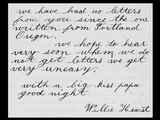 we have had no letters
from you since the one
written from Portland
Oregon.
we hope to hear
very soon when we do
not get letters we get
very uneasy.
with a big kiss papa
good night
Willie Hearst